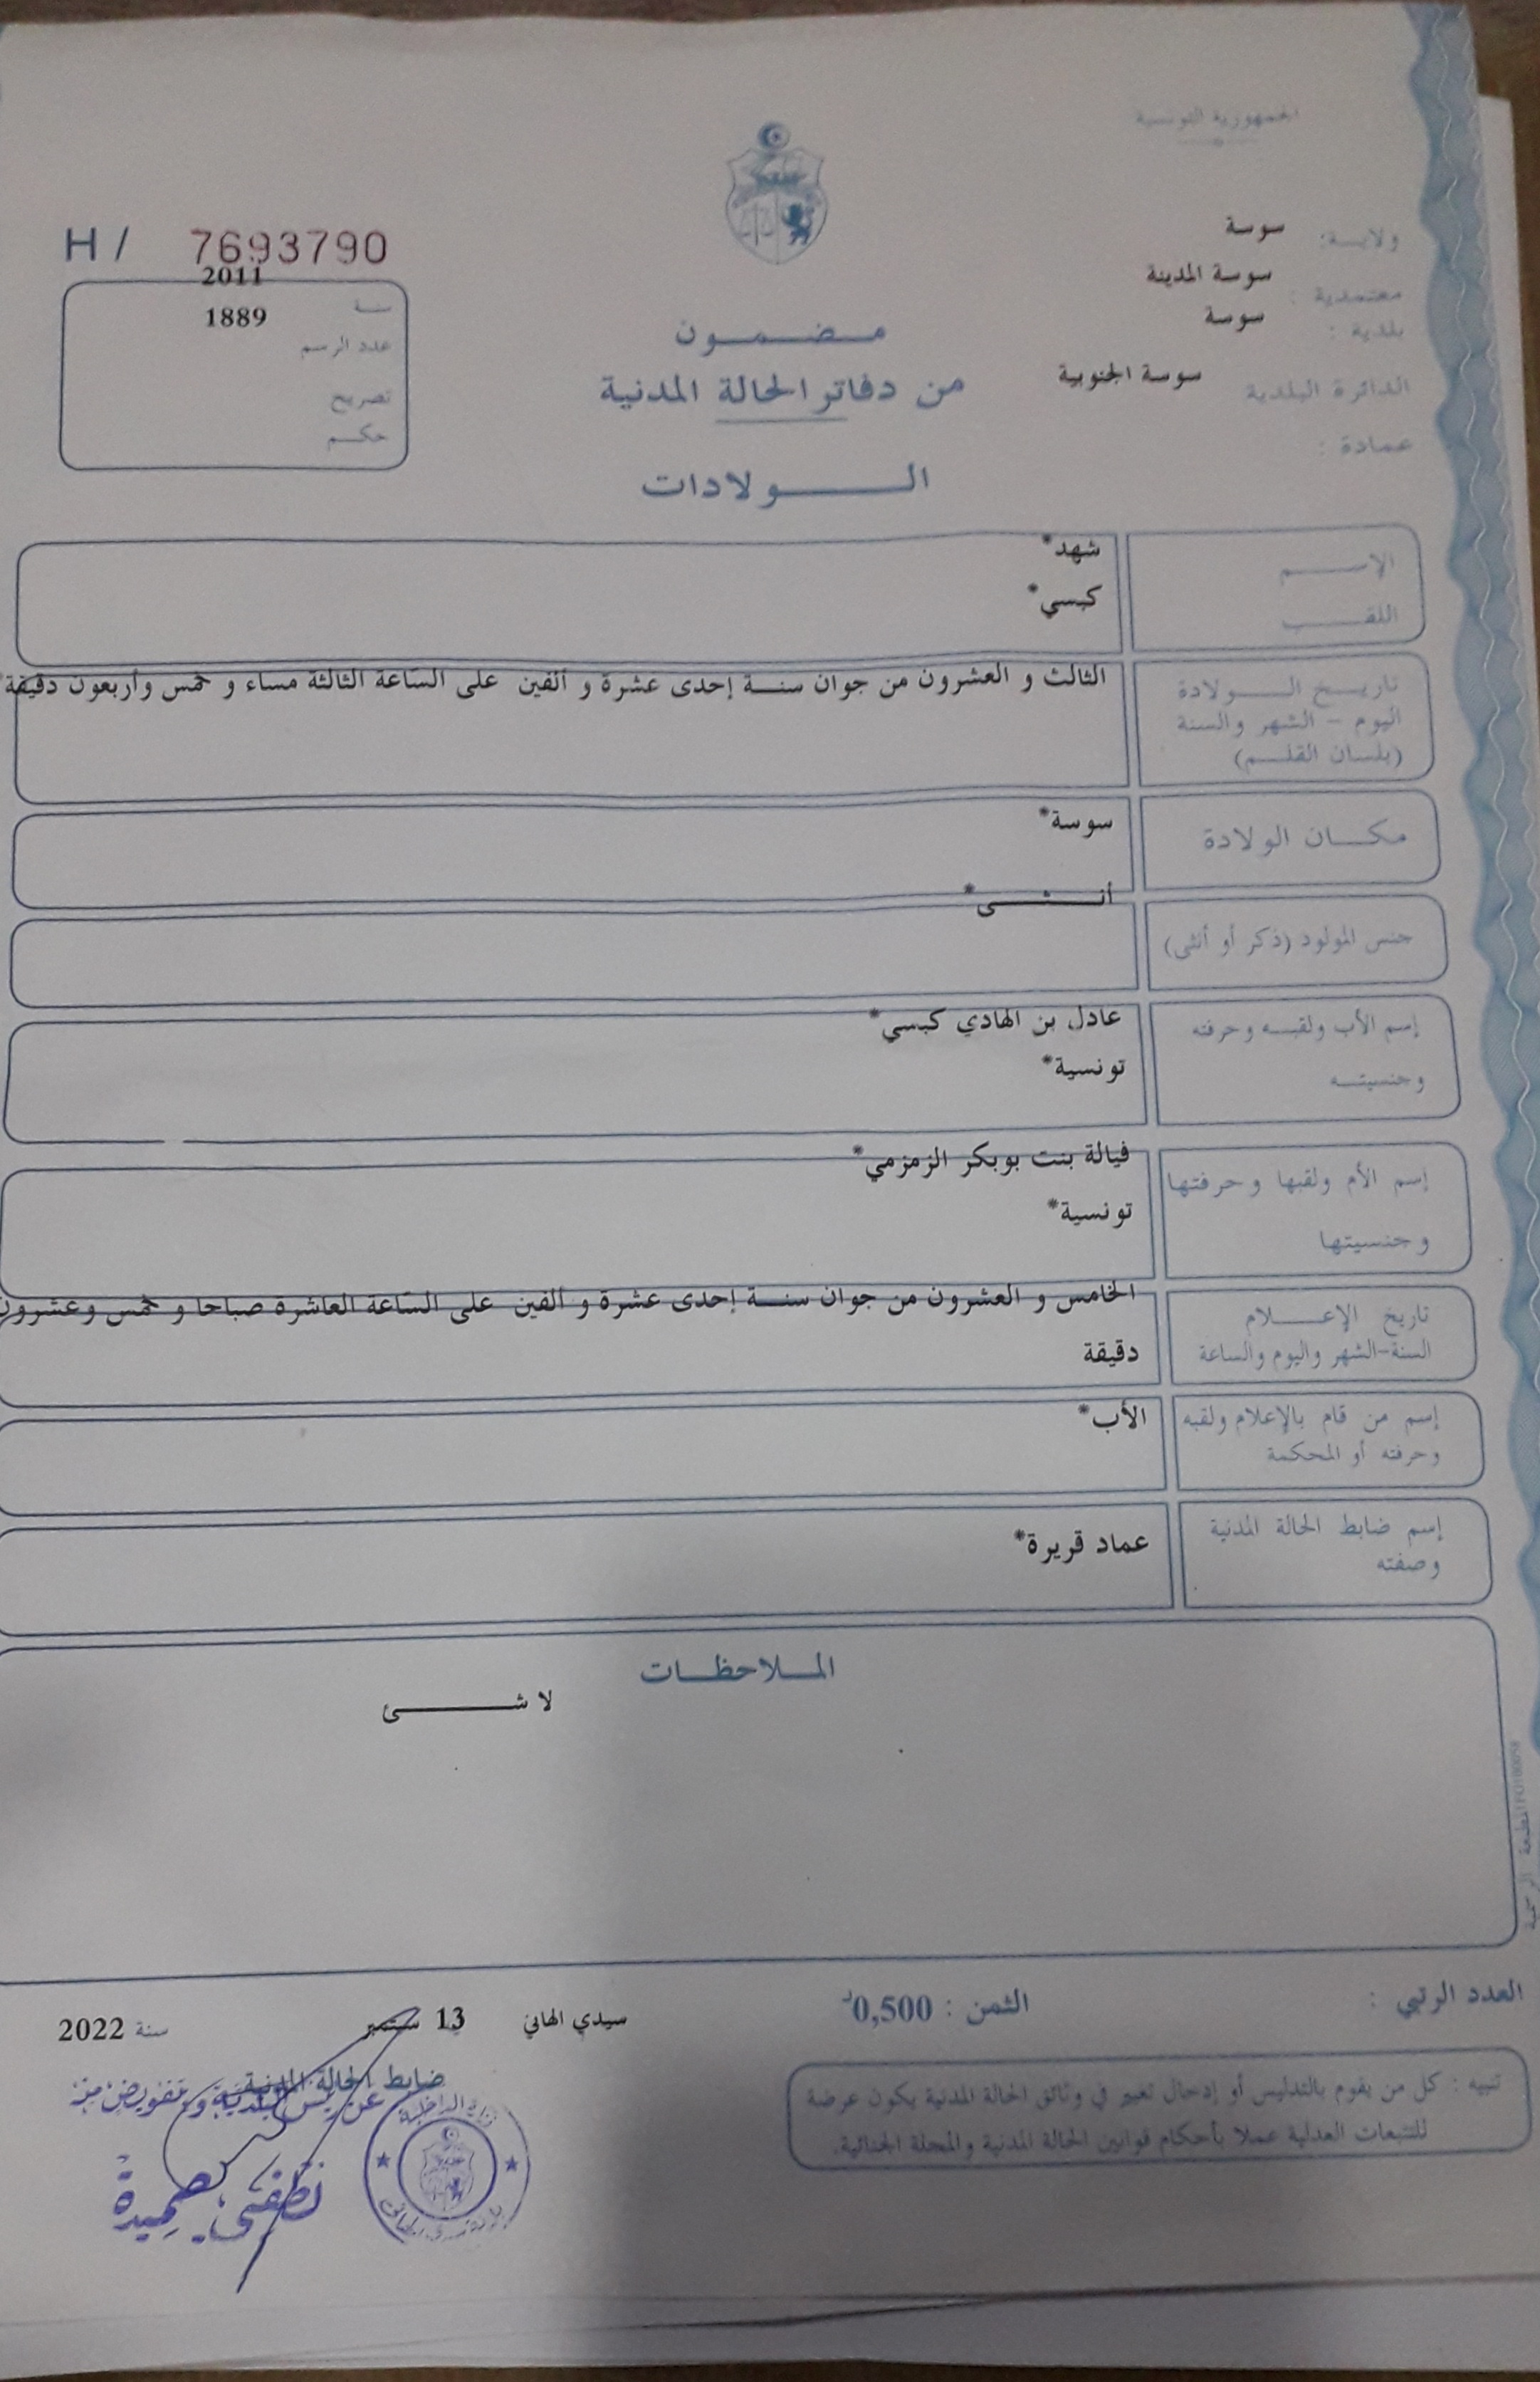 الجمهورية التونسية
ولاية: سوسة
معتمدية : سوسة المدينة
بلدية : سوسة
الدائرة البلدية سوسة الجنوبية
عمادة :
H / 7693790
سنة 2011
عدد الرسم 1889
تصريح
حكم
مضمون
من دفاتر الحالة المدنية
الولادات
الإسم شهد*
اللقب كبسي*
تاريخ الولادة الثالث و العشرون من جوان سنة إحدى عشرة و ألفين على السّاعة الثالثة مساء و خمس وأربعون دقيقة*
اليوم - الشهر والسنة
(بلسان القلم)
مكان الولادة سوسة*
جنس المولود (ذكر أو أنثى) أنثى*
إسم الأب ولقبه وحرفته عادل بن الهادي كبسي*
وجنسيته تونسية*
إسم الأم ولقبها وحرفتها فيالة بنت بوبكر الزمزمي*
وجنسيتها تونسية*
تاريخ الإعلام الخامس و العشرون من جوان سنة إحدى عشرة و ألفين على السّاعة العاشرة صباحا و خمس وعشرون
السنة-الشهر واليوم والساعة دقيقة
إسم من قام بالإعلام ولقبه الأب*
وحرفته أو المحكمة
إسم ضابط الحالة المدنية عماد قريرة*
وصفته
الملاحظات
لا شئ
المطبعة الرسمية
العدد الرتبي :
الثمن : 0,500د
سيدي الهاني 13 سبتمبر سنة 2022
ضابط الحالة المدنية
عن رئيس البلدية وبتفويض منه
تنبيه : كل من يقوم بالتدليس أو إدخال تغيير في وثائق الحالة المدنية يكون عرضة
للتتبعات العدلية عملا بأحكام قوانين الحالة المدنية والمجلة الجنائية.
وزارة الداخلية
بلدية سيدي الهاني